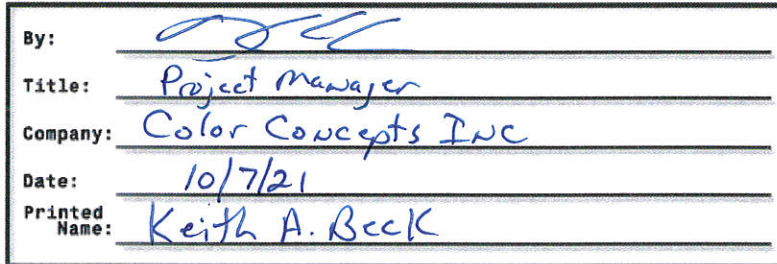 By:
Title: Project Manager
Company: Color Concepts Inc
Date: 10/7/21
Printed
Name: Keith A. Beck